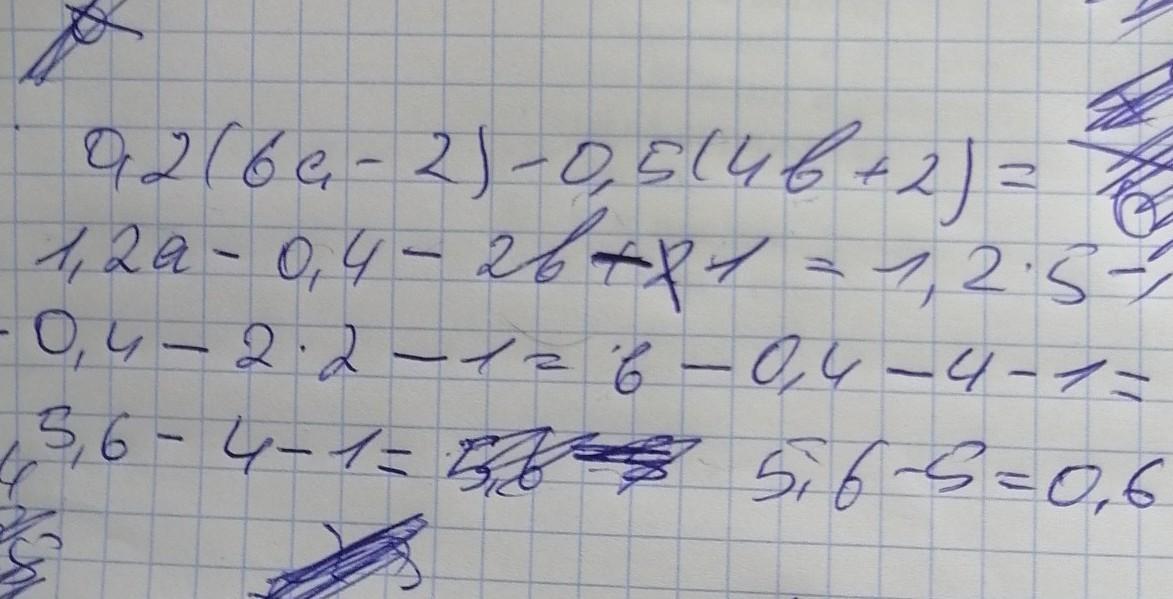 0,2(6a-2)-0,5(4b+2)=
1,2a-0,4-2b-1=1,2·5-
-0,4-2·2-1=6-0,4-4-1=
5,6-4-1= 5,6-5=0,6